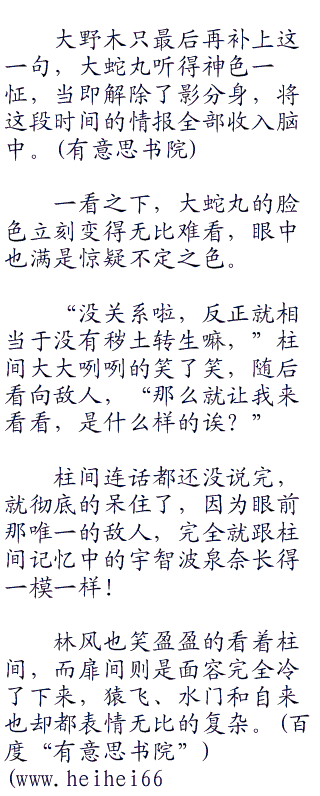 大野木只最后再补上这
一句，大蛇丸听得神色一
怔，当即解除了影分身，将
这段时间的情报全部收入脑
中。(有意思书院)
一看之下，大蛇丸的脸
色立刻变得无比难看，眼中
也满是惊疑不定之色。
“没关系啦，反正就相
当于没有秽土转生嘛，”柱
间大大咧咧的笑了笑，随后
看向敌人，“那么就让我来
看看，是什么样的诶？”
柱间连话都还没说完，
就彻底的呆住了，因为眼前
那唯一的敌人，完全就跟柱
间记忆中的宇智波泉奈长得
一模一样！
林风也笑盈盈的看着柱
间，而扉间则是面容完全冷
了下来，猿飞、水门和自来
也却都表情无比的复杂。(百
度“有意思书院”)
(www.heihei66